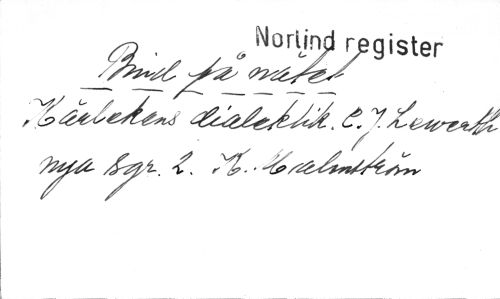 Norlind register
Bind på nätet
Kärlekens dialektik. C. J. Lewerth
nya sgr. 2. K. Malmström